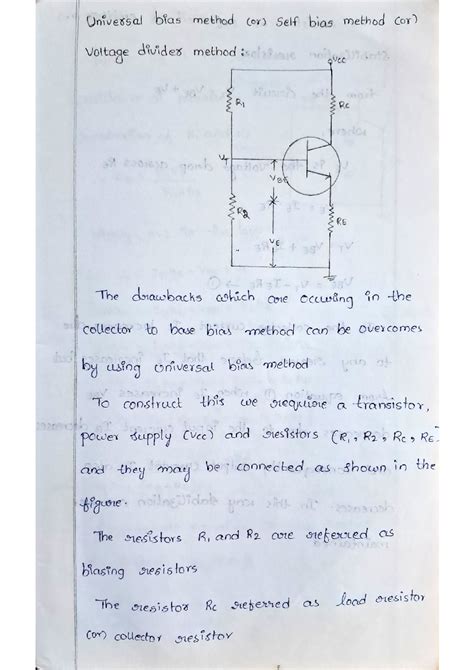 Universal bias method (or) Self bias method (or)
Voltage divider method :
VCC
R1
RC
VT
VBE
R2
RE
VE
The drawbacks which are occuring in the
collector to base bias method can be overcomes
by using universal bias method
To construct this we require a transistor,
power supply (Vcc) and resistors (R1, R2, RC, RE
and they may be connected as shown in the
figure.
The resistors R1 and R2 are referred as
biasing resistors
The resistor Rc referred as load resistor
(or) collector resistor